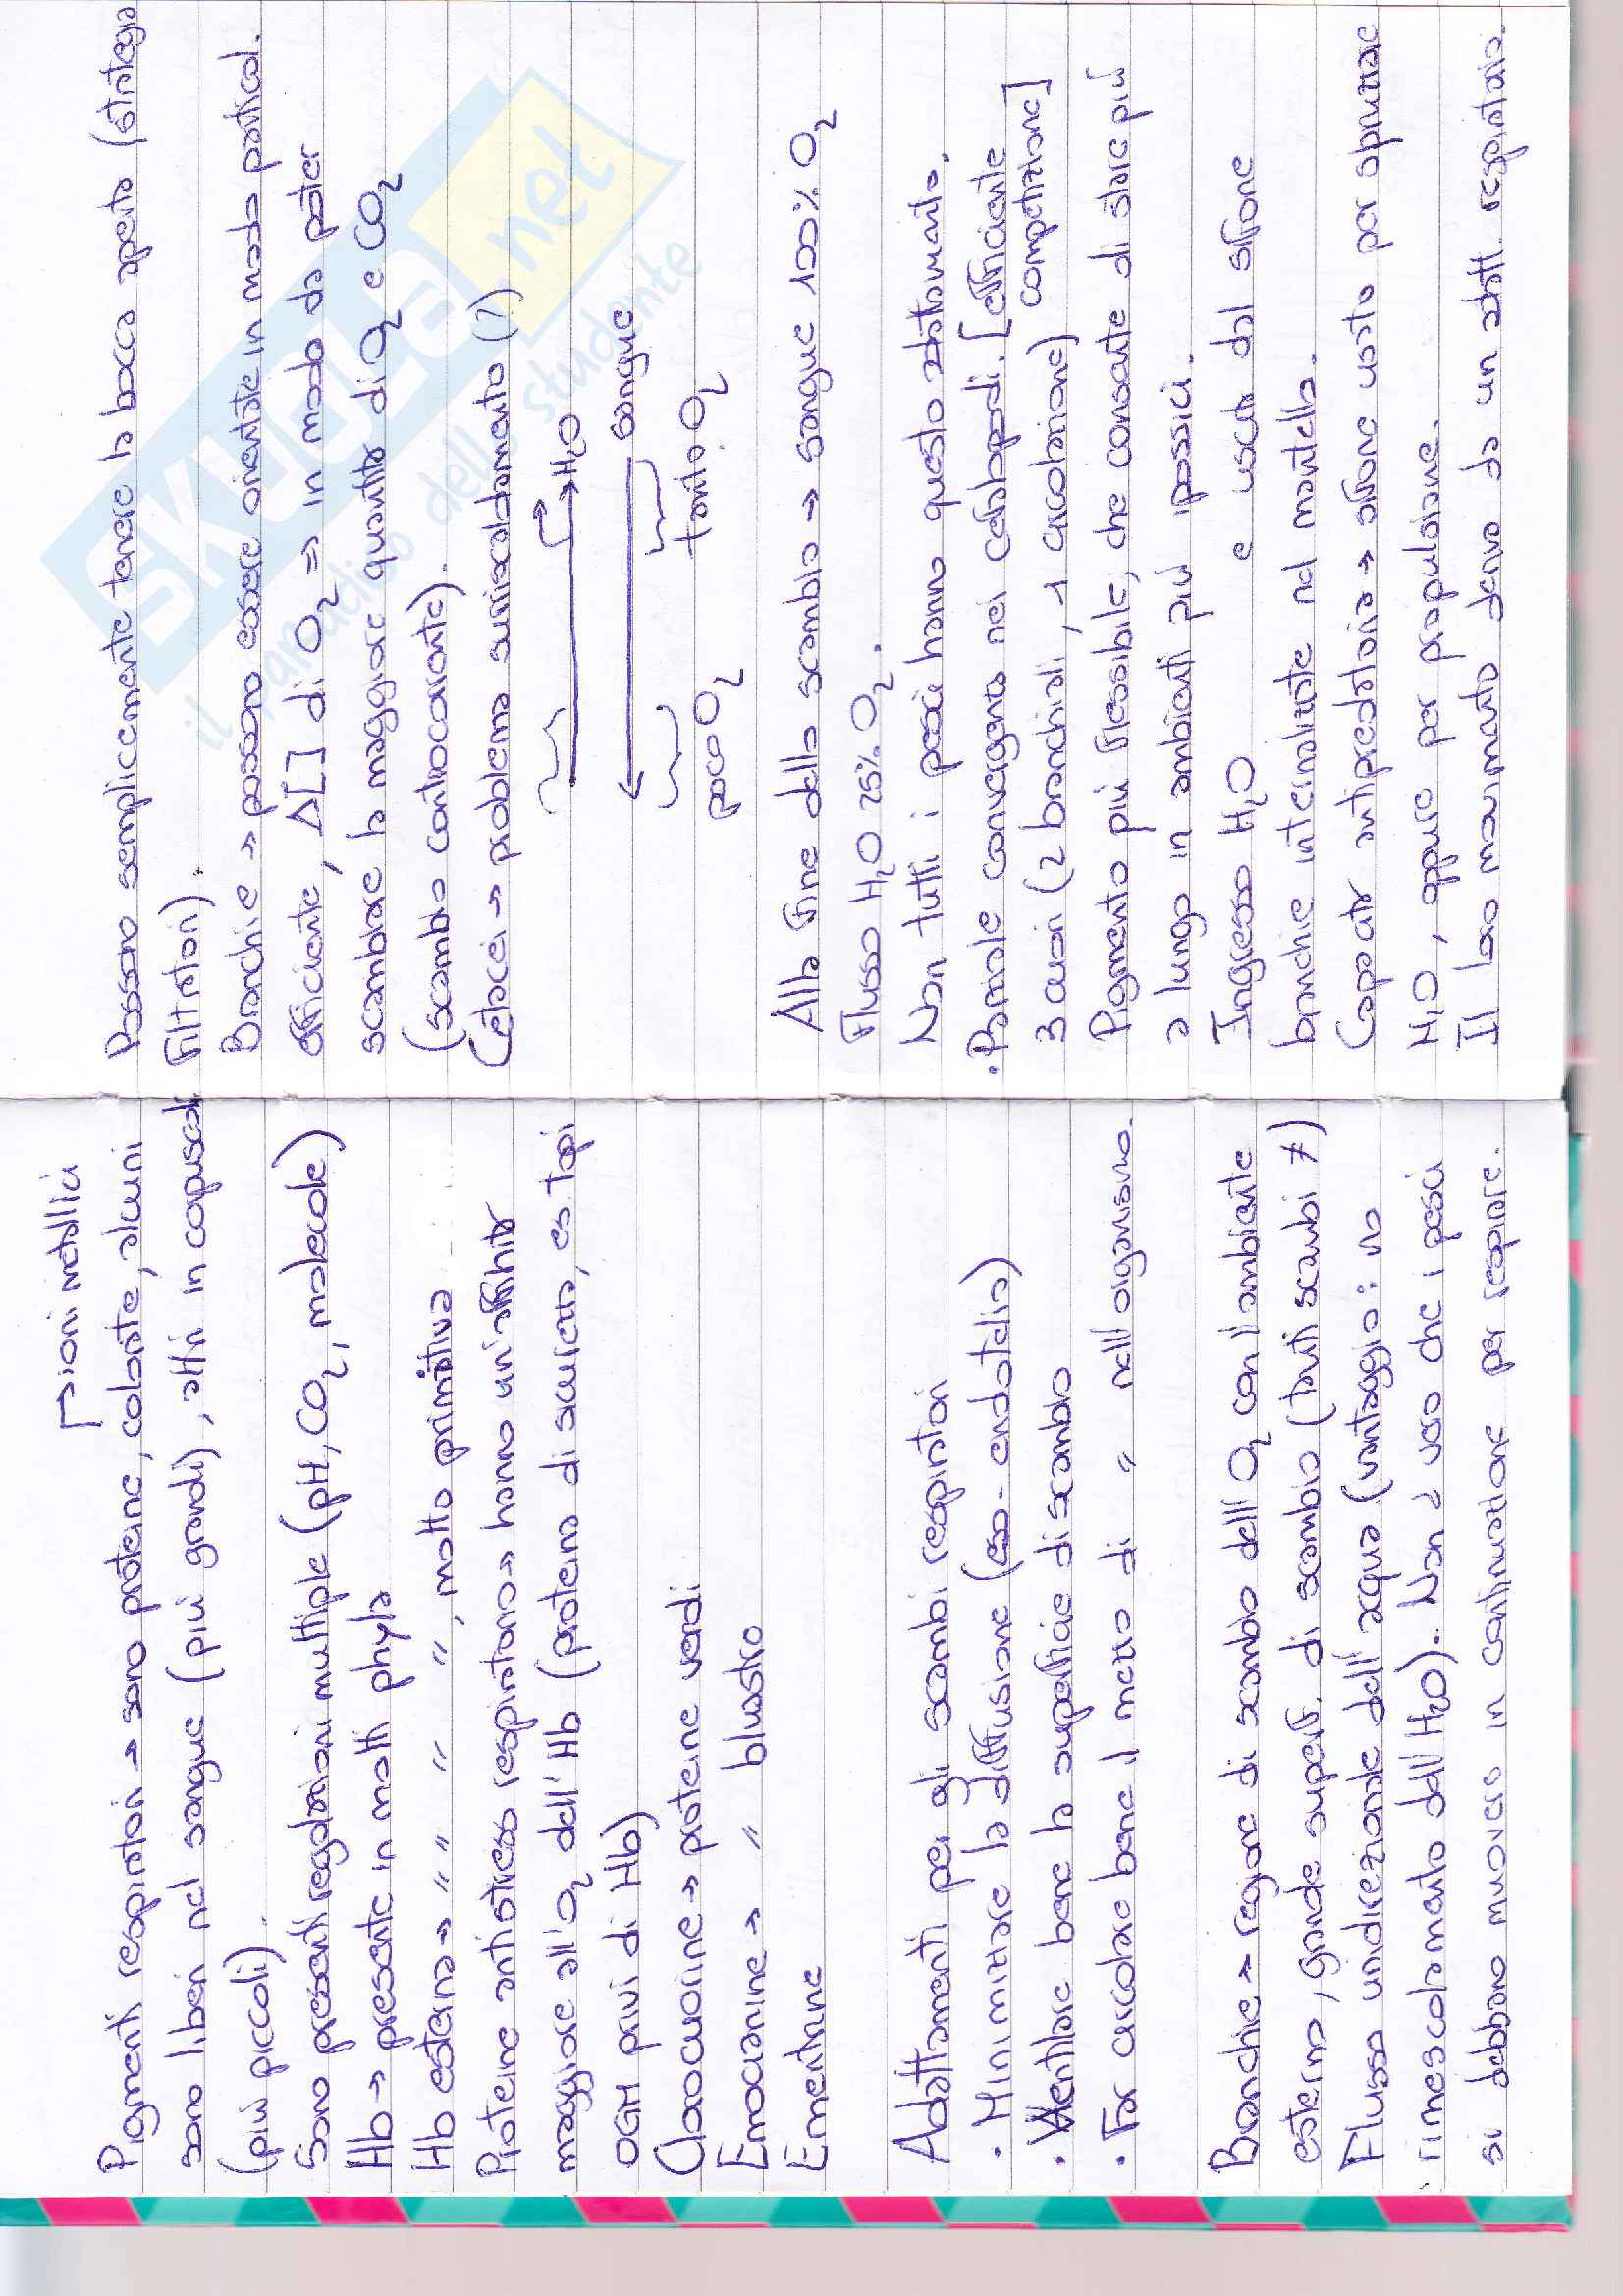 ioni metallici
Pigmenti respiratori → sono proteine, colorate, alcuni
sono liberi nel sangue (più grandi), altri in copuscoli
(più piccoli).
Sono presenti regolazioni multiple (pH, CO2, molecole)
Hb → presente in molti phyla
Hb esterna → " " " ", molto primitiva
Proteine antistress respiratorio → hanno un'affinità
maggiore all'O2 dell'Hb (proteina di sicurezza, es topi
OGM privi di Hb)
Clorocruorine → proteine verdi
Emocianine → " bluastro
Emeritrine
Adattamenti per gli scambi respiratori
• Minimizzare la diffusione (eso-endotelio)
• Ventilare bene la superficie di scambio
• Far circolare bene il mezzo di " nell'organismo.
Branchie → regione di scambio dell'O2 con l'ambiente
esterno, grande superf. di scambio (tanti scambi ≠)
Flusso unidirezionale dell'acqua (vantaggio: no
rimescolamento dell'H2O). Non è vero che i pesci
si debbano muovere in continuazione per respirare.
Possono semplicemente tenere la bocca aperta (strategia
filtratori).
Branchie → possono essere orientate in modo particol.
efficiente, Δ[] di O2 ⇒ in modo da poter
scambiare la maggiore quantità di O2 e CO2
(scambio controcorrente).
Cetacei → problema surriscaldamento (!)
→ H2O
sangue
poco O2 tanto O2
Alla fine dello scambio → sangue 100% O2
flusso H2O 25% O2.
Non tutti i pesci hanno questo adattamento.
• Parziale convergenza nei cefalopodi. [efficiente
competizione]
3 cuori (2 branchiali, 1 circolazione)
Pigmento più flessibile, che consente di stare più
a lungo in ambienti più ipossici.
Ingresso H2O e uscita dal sifone
branchie internalizzate nel mantello.
Capacità antipredatorie → sifone usato per spruzzare
H2O, oppure per propulsione.
Il loro movimento deriva da un adatt. respiratorio.
SKUOLA.net
il paradiso dello studente